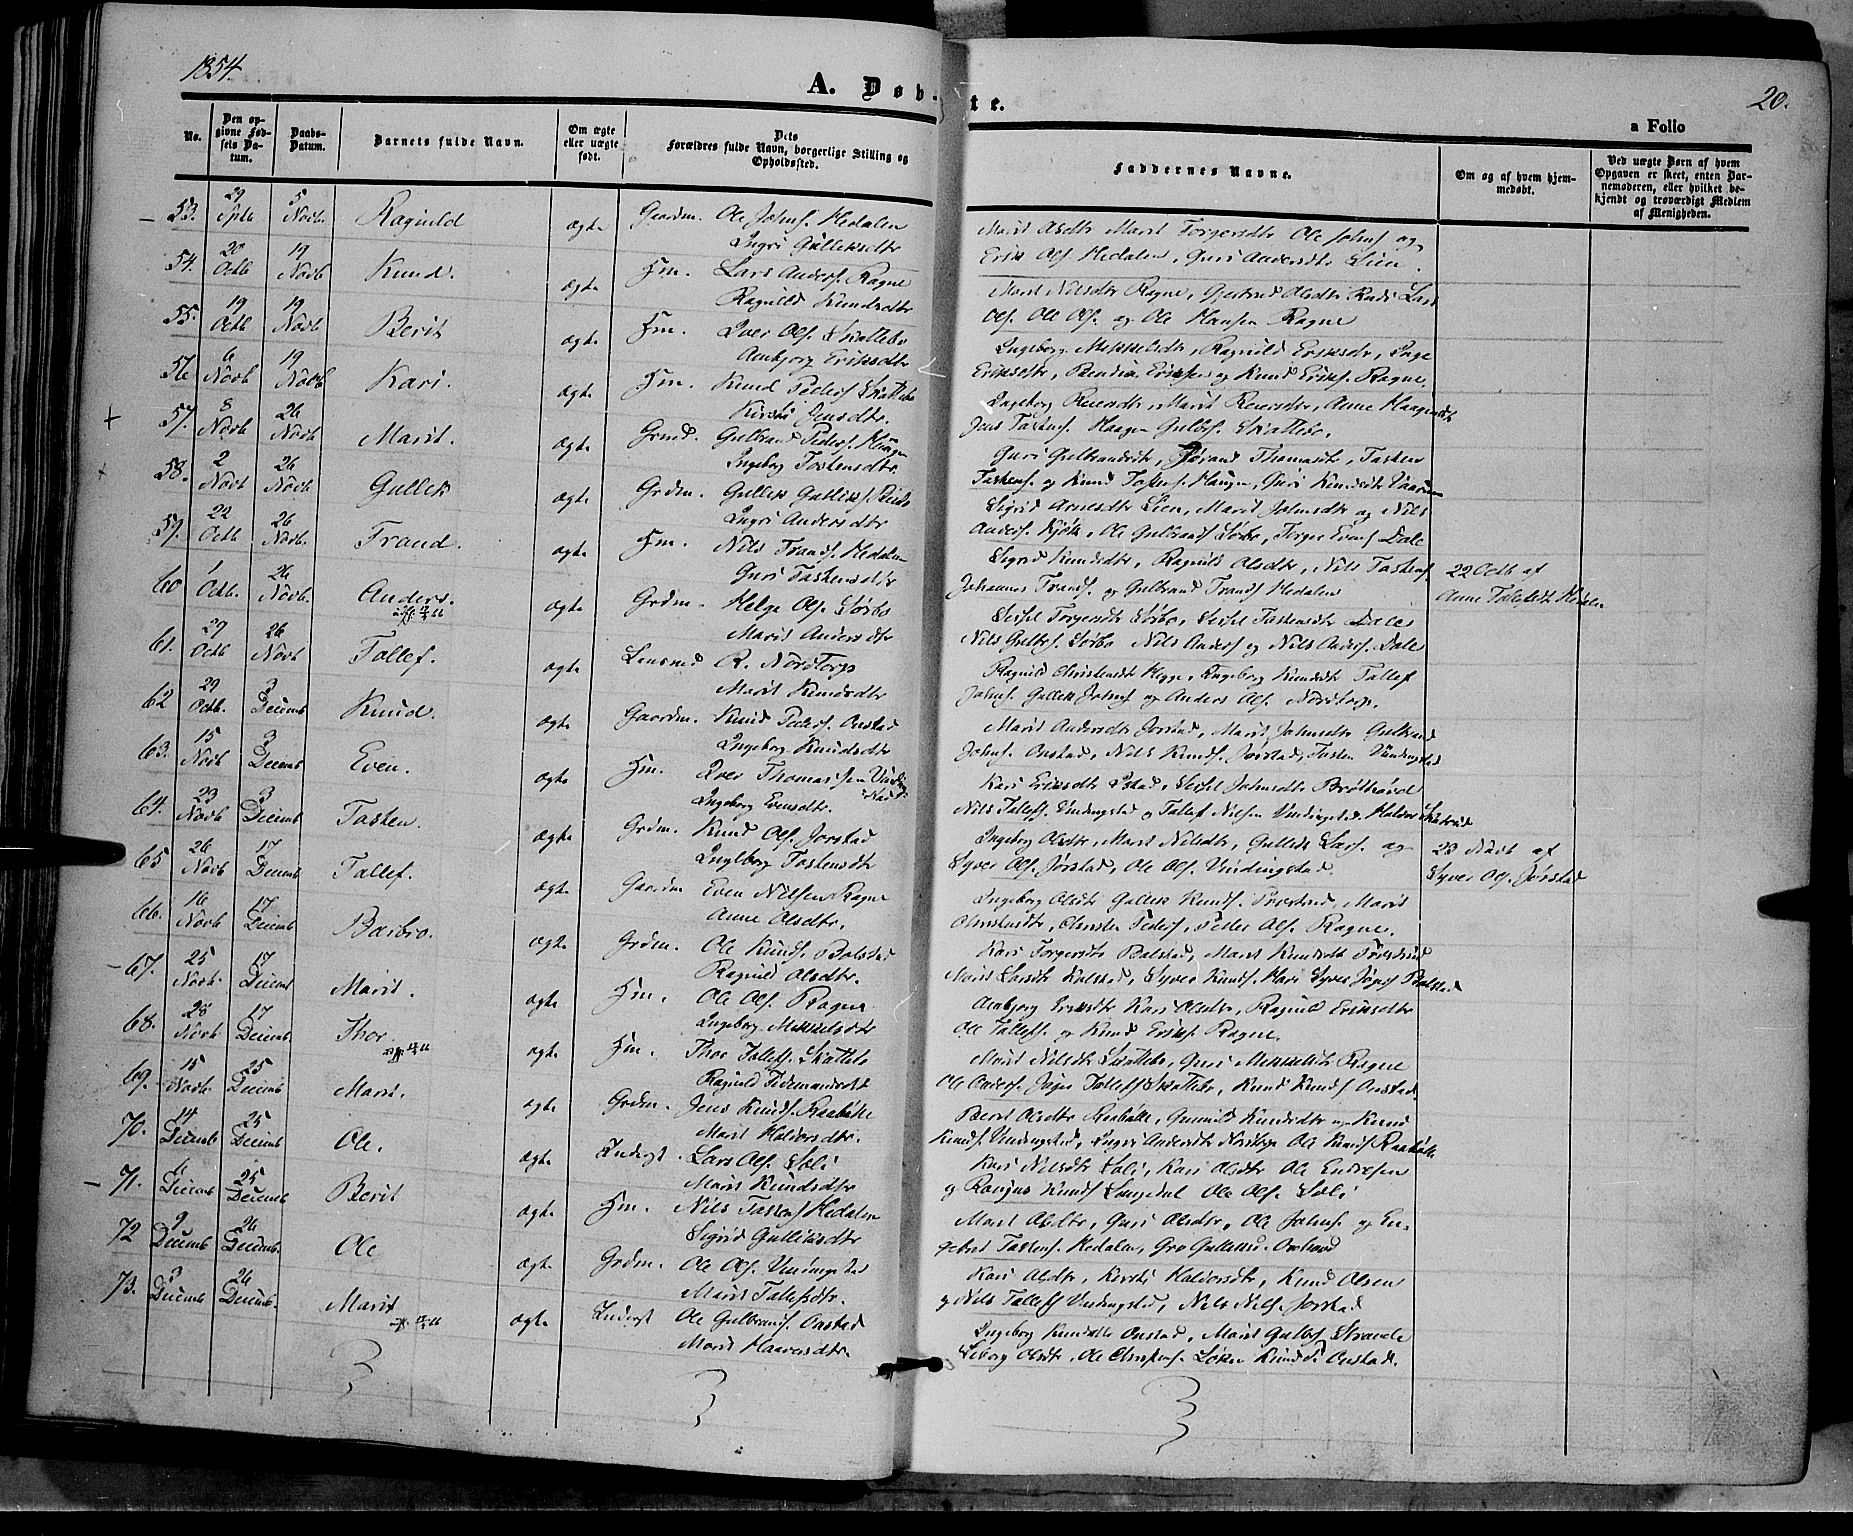 1854.
A. Døb-
te.
20.
a Folio
No.
Den op-
givne Fød-
sels Da-
tum.
Daabs-
Datum.
Barnets fulde Navn.
Om ægte
eller uægte
født.
Dets
Forældres fulde Navn, borgerlige Stilling og
Opholdssted.
Faddernes Navne.
Om og af hvem hjem-
medøbt.
Ved uægte Børn af hvem
Opgaven er skeet, enten Bar-
nemoderen, eller hvilket be-
kjendt og troværdigt Medlem
af Menigheden.
53. 29 Sptb 5 Novb. Ragnild ægte Gaardm. Ole Johns. Hedalen
Ingri Gulleksdtr
Marit Olsdtr Marit Torgersdtr Ole Johns og
Erik Ols Hedalen, Guri Andersdtr Lien.
54. 20 Octb 19 Novb Knud. ægte Hm. Lars Anders. Ragne
Ragnild Knudsdtr
Marit Nilsdtr Ragne, Gjertrud Olsdtr Lars
Ols. Ole Ols. og Ole Hansen Ragne
55. 19 Octb 19 Novb Berit ægte Hm. Iver Ols. Skattebo
Ambjorg Eriksdtr
Ingeborg Mikkelsdtr, Ragnild Eriksdtr, Inge
Eriksdtr, og Knud Eriks. Ragne.
56 6 Novb 19 Novb Kari. ægte Hm. Knud Peders Skattebo
Kirsti Jensdtr.
Ingeborg Reiersdtr, Marit Reiersdtr, Anne Haagensdtr
Jens Tostens. Haagen Gulbs. Skattebo.
57. 8 Novb 26 Novb Marit. ægte Grdmd. Gulbrand Peders. Haugen
Ingeborg Tostensdtr
Guri Gulbrandsdtr, Jørand Thomasdtr, Tosten
Tostens. og Knud Tostens. Haugen, Guri Knudsdtr
58. 2 Novb 26 Novb. Gullek ægte Grdm. Gullek Gulleks.
Ingri Andersdtr
Sigrid Arnesdtr Lien, Marit Johnsdtr og Nils
Anders. Kjøk, Ole Gulbrands Sørbø, Torger Evens Dale
59. 22 Octb 26 Novb. Trond. ægte Hm. Nils Tronds. Hedalen
Guri Tostensdtr
Sigrid Knudsdtr, Ragnild Olsdtr, Nils Tostens
Johannes Tronds. og Gulbrand Tronds Hedalen
22 Octb af
Anne Tollefsdtr Hedalen
60 1 Octb. 26 Novb. Anders. ægte Grdm. Helge Ols. Sørbø
Marit Andersdtr
Sissel Torgersdtr Sørbø, Sissel Tostensdtr Dale
Nils Gulbs. Sørbø Nils Anders og Nils Anders. Dale
61. 29 Octb 26 Novb. Tollef. ægte Lensmd R. Nordtorp
Marit Knudsdtr
Ragnild Christensdtr Hegge, Ingeborg Knudsdtr Tollef
Johns. Gullek Johns og Anders Ols. Nordtorp.
62 29 Octb. 3 Decemb Knud. ægte Gaardm. Knud Peders. Onstad
Ingeborg Knudsdtr
Marit Andersdtr Jorstad, Marit Johnsdtr Gulbrand
Johns. Onstad, Nils Knuds. Jørstad, Tosten Vindingstad
63. 15 Novb 3 Decemb Even. ægte Hm. Iver Thomassen
Ingeborg Evensdtr.
Kari Eriksdtr Sissel Johnsdtr
Nils Tollefs. Vindingstad og Tollef Nilsen Vindingstad Haldor
64. 23 Novb 3 Decemb Tosten. ægte Grdm. Knud Ols. Jorstad
Ingeborg Tostensdtr
Ingeborg Olsdtr, Marit Nilsdtr, Gullek Lars. og
Syver Ols. Jørstad, Ole Ols. Vindingstad.
23 Novb af
Syver Ols. Jørstad
65 26 Novb 17 Decemb Tollef. ægte Gaardm Even Nilsen Ragne
Anne Olsdtr.
Ingeborg Olsdtr Gullek Knuds. Marit
Christensdtr, Christen Peders, Peder Ols. Ragne.
66. 16 Novb 17 Decemb Barbro. ægte Grdm. Ole Knuds. Bolstad
Ragnild Olsdtr.
Kari Torgersdtr Bolstad, Marit Knudsdtr
Marit Larsdtr Bolstad, Syver Knuds.
67. 25 Novb. 17 Decemb Marit. ægte Hm. Ole Ols. Ragne
Ingeborg Mikkelsdtr
Ambjorg Eriksdtr Kari Olsdtr, Ragnild Eriksdtr
Ole Tollefs. og Knud Eriks. Ragne.
68. 28 Novb 17 Decemb Thor ægte Hm. Thor Tollefs. Skattebo
Ragnild Tidemandsdtr
Marit Nilsdtr Skattebo, Guri Mikkelsdtr Ragne
Ole Anders. Tollefs Skattebo, Knud Knuds. Onstad
69. 15 Novb 25 Decemb Marit. ægte Grdm. Jens Knuds. Raabøle
Marit Haldorsdtr.
Berit Olsdtr Raabøle, Gunnild Knudsdtr og Knud
Knuds Vindingstad, Ingri Andersdtr Nordtorp Ole Knuds Raabøle
70. 14 Decemb 25 Decemb Ole. ægte Inderst. Lars Ols. Sæli
Marit Knudsdtr
Kari Nilsdtr Sæli, Kari Olsdtr Ole Endresen
og Knuds Ole Ols. Sæli
71. 6 Decemb 25 Decemb Berit ægte Hm. Nils Tostens Hedalen
Sigrid Gulleksdtr
Marit Olsdtr, Guri Olsdtr, Ole Johns. og En-
gebret Tostens. Hedalen, Gro Gulleks.
72 9 Decemb 26 Decemb. Ole ægte Grdm. Ole Ols. Vindingstad
Marit Tollefsdtr.
Kari Olsdtr, Kirsti Haldorsdtr, Knud Olsen
og Nils Tollefs Vindingstad, Nils Nils. Jorstad
73. 3 Decemb 26 Decemb. Marit ægte Inderst Ole Gulbrands. Onstad
Marit Haaversdtr.
Ingeborg Knudsdtr Onstad, Marit Gulbs. Strande
Siborg Olsdtr, Ole Christens. Løken Knud P. Onstad.